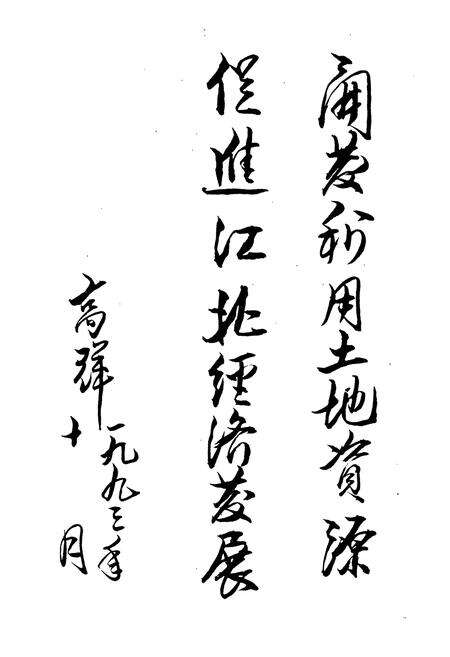 開發利用土地資源
促進江北經濟發展
高群
一九九三年
十月